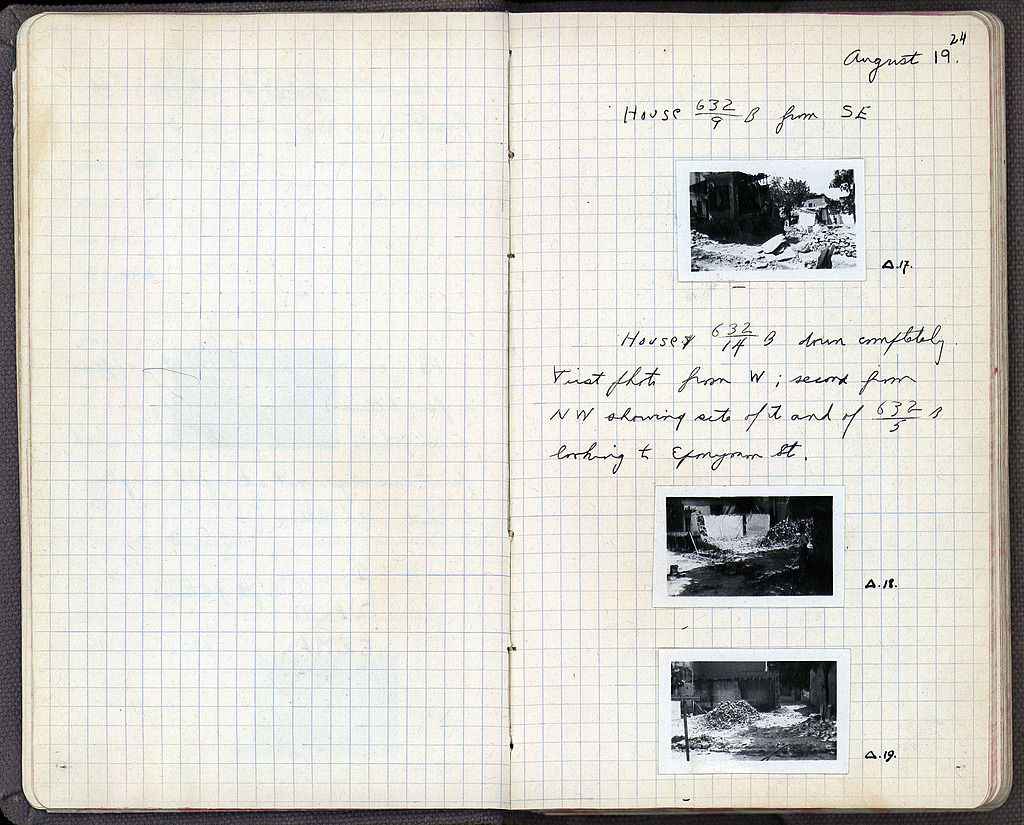 24
August 19.
House 632/9 B from SE
Δ.17.
House 632/14 B down completely.
First photo from W; second from
NW showing site of it and of 632/5 B
looking to Eponymon St.
Δ.18.
Δ.19.